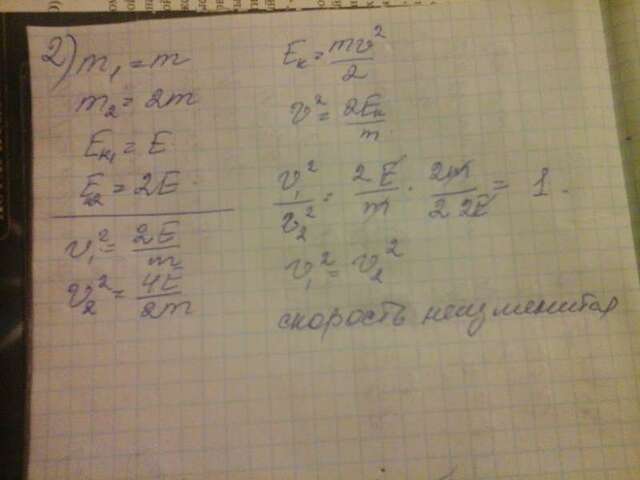 2) m₁ = m
m₂ = 2m
Eк₁ = E
Eк₂ = 2E
v₁² = 2E/m
v₂² = 4E/2m
Eк = mv²/2
v² = 2Eк/m
v₁²/v₂² = 2E/m · 2m/2 2E = 1.
v₁² = v₂²
скорость неизменится